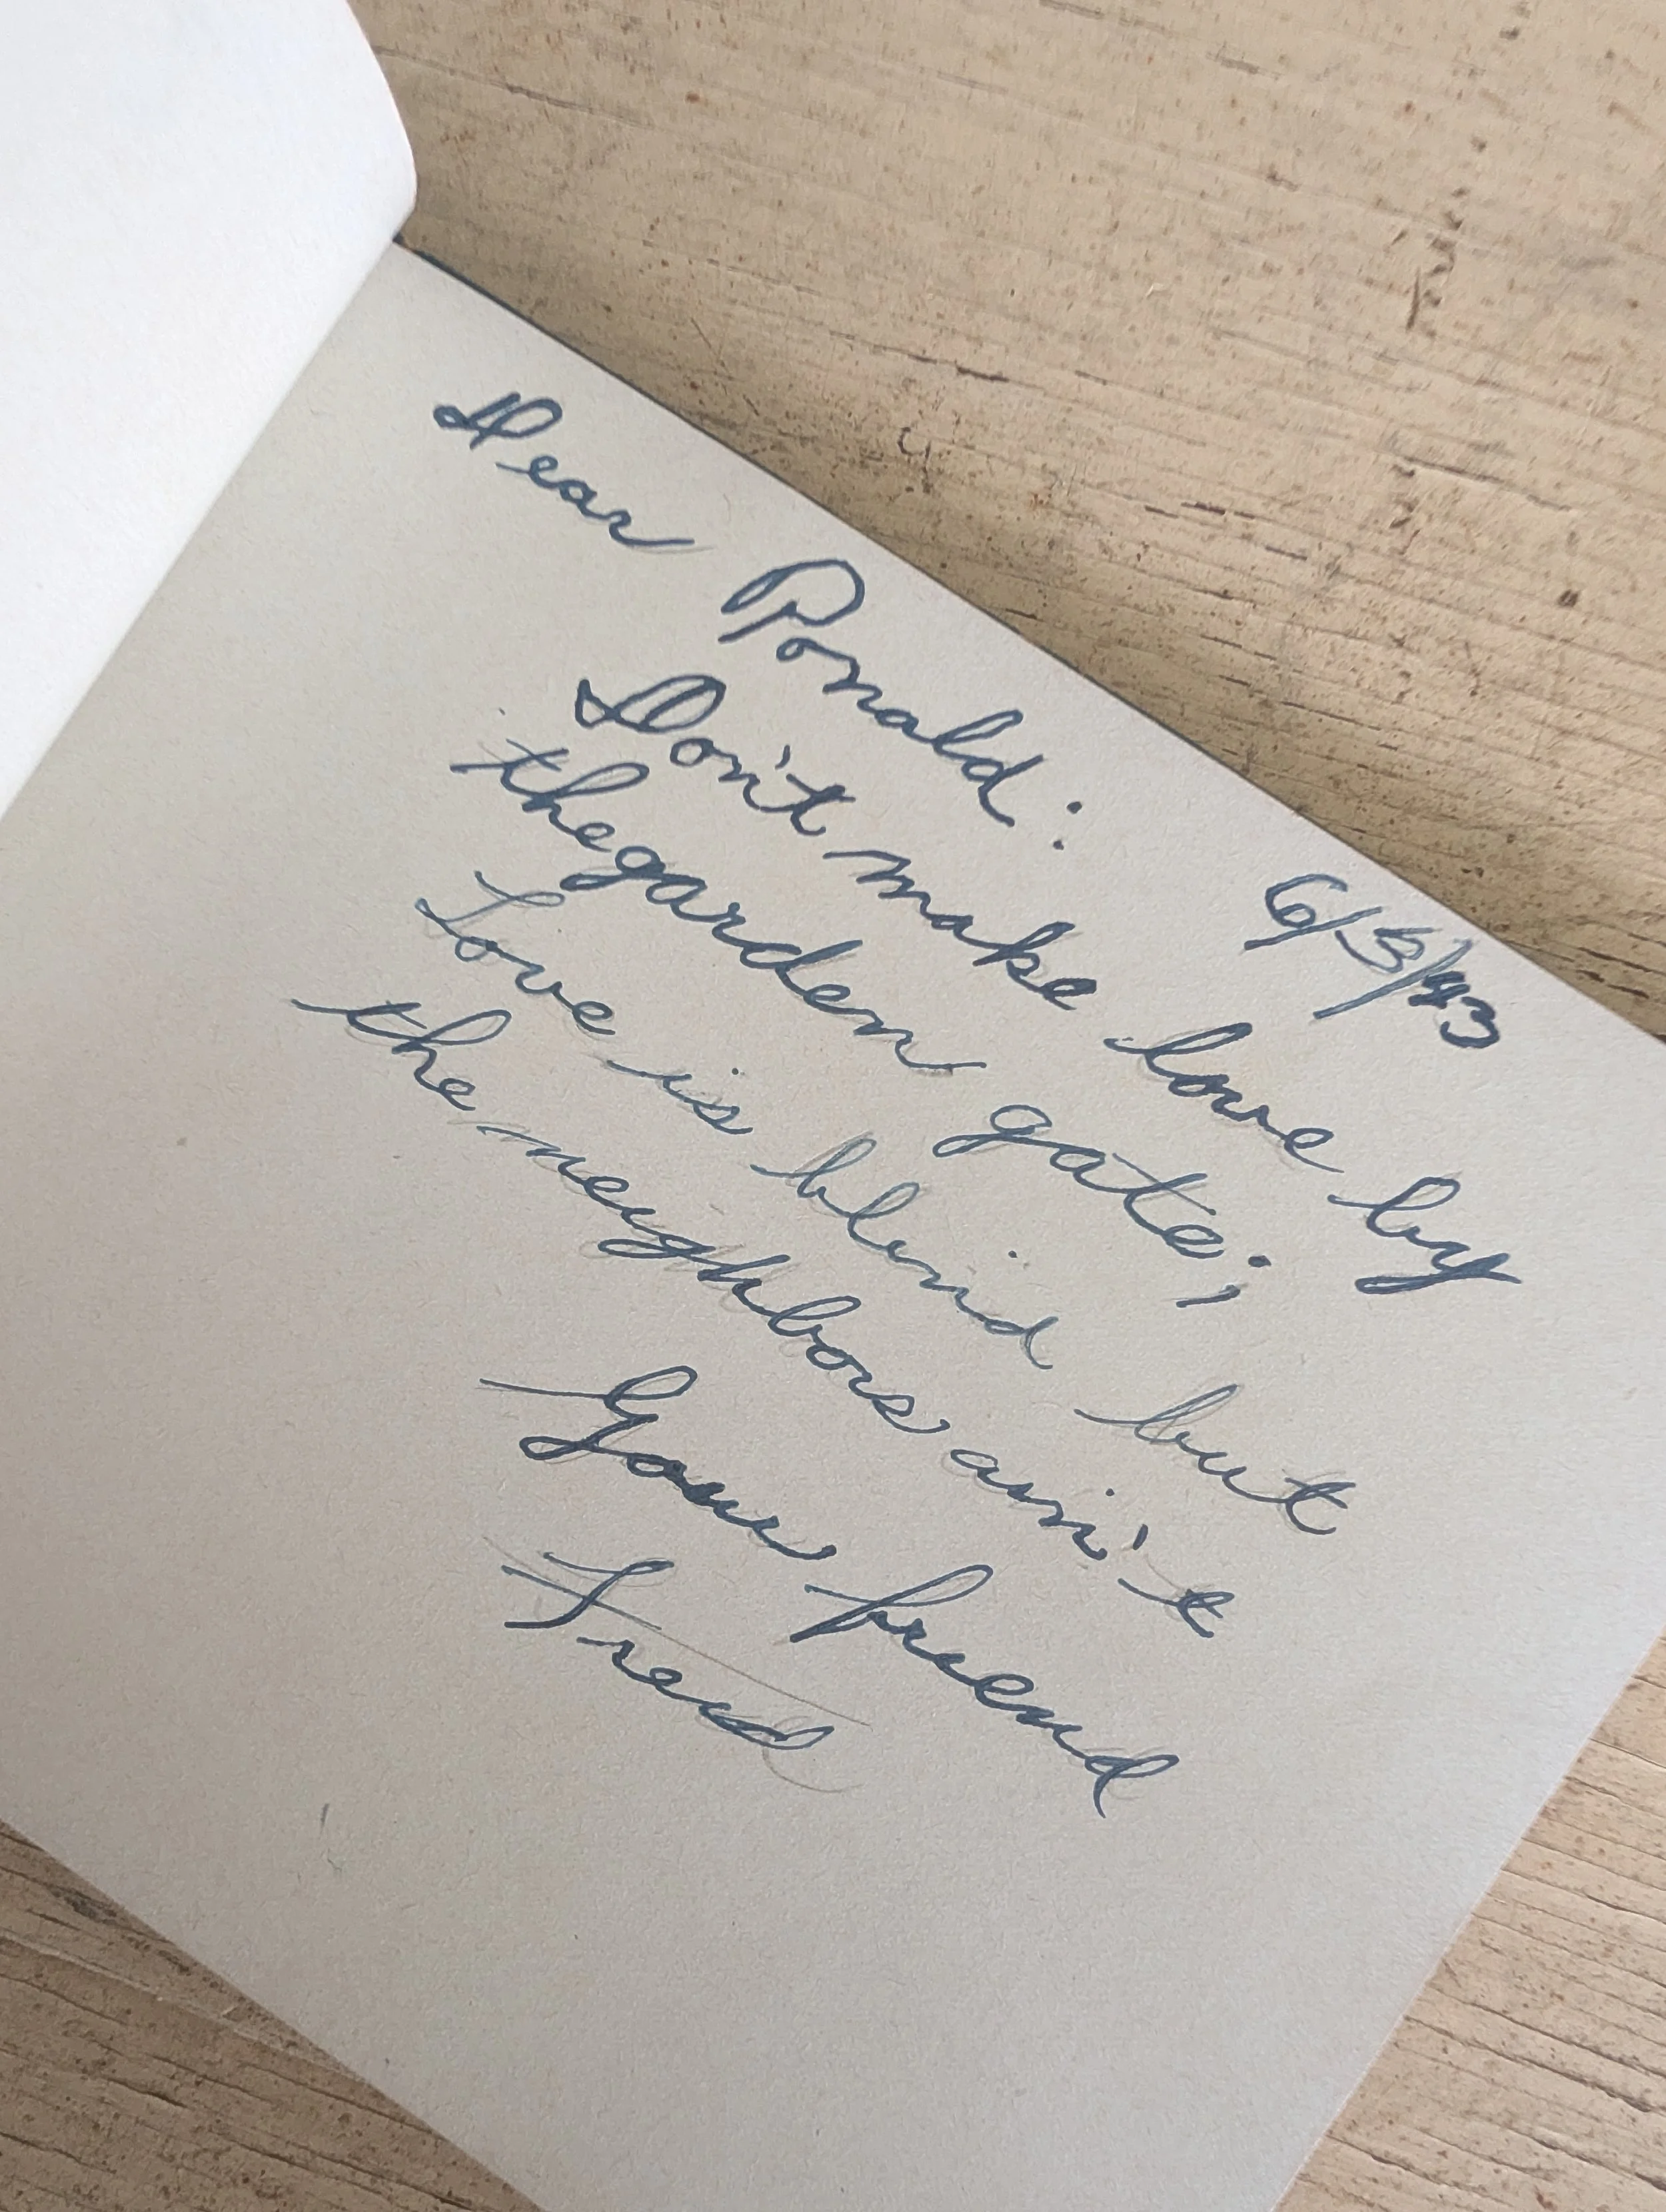 Dear Ronald: 6/5/43
Don't make love by
the garden gate;
Love is blind but
the neighbors ain't
Your friend
Fred